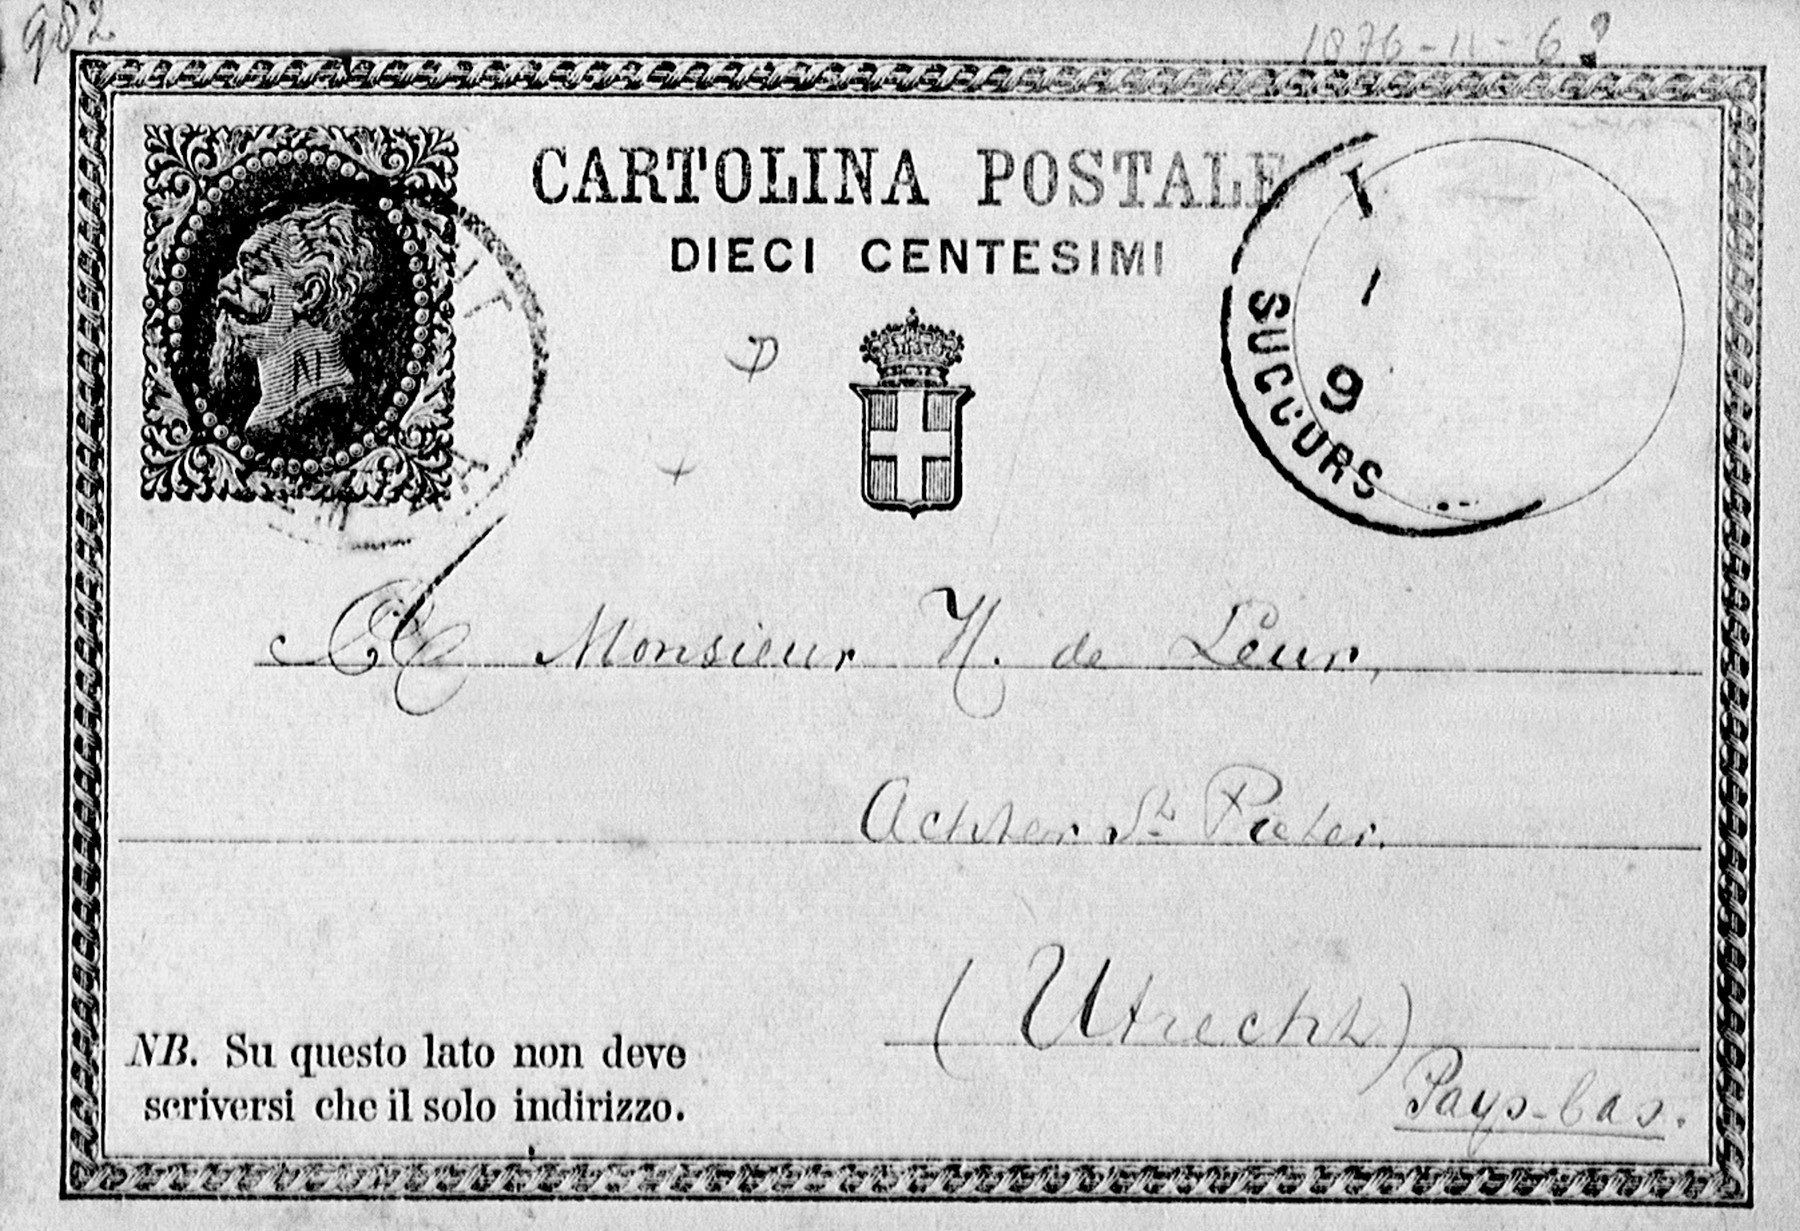 982
1876-11-6?
CARTOLINA POSTALE
DIECI CENTESIMI
SUCCURS
9
A Monsieur H. de Leur,
Achter St Pieter.
(Utrecht)
Pays-bas.
NB. Su questo lato non deve
scriversi che il solo indirizzo.